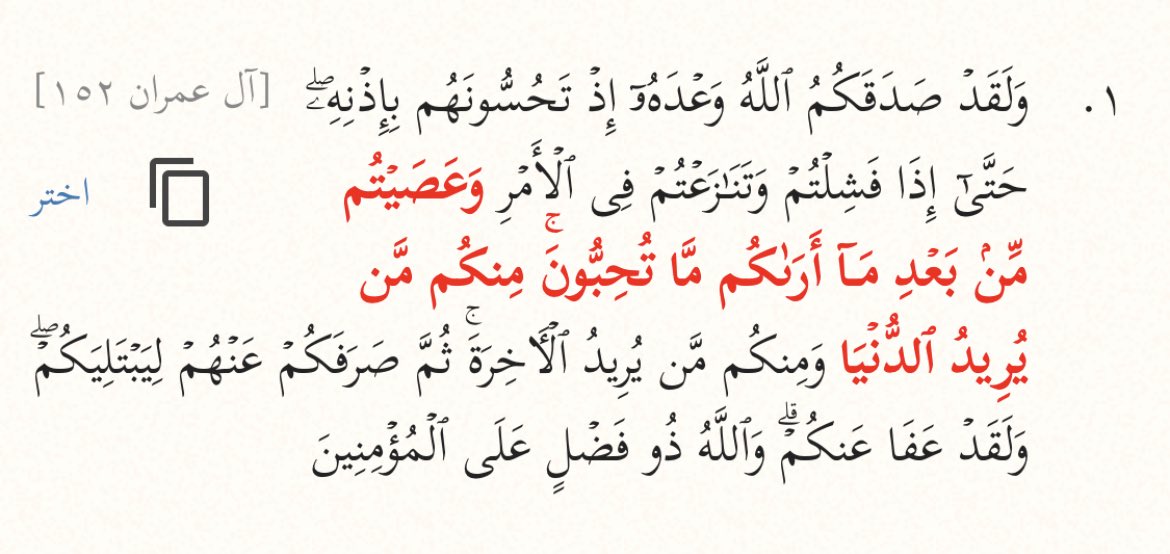 ١. وَلَقَدۡ صَدَقَكُمُ ٱللَّهُ وَعۡدَهُۥٓ إِذۡ تَحُسُّونَهُم بِإِذۡنِهِۦۖ [آل عمران ١٥٢]
حَتَّىٰٓ إِذَا فَشِلۡتُمۡ وَتَنَٰزَعۡتُمۡ فِى ٱلۡأَمۡرِ وَعَصَيۡتُم
اختر
مِّنۢ بَعۡدِ مَآ أَرَىٰكُم مَّا تُحِبُّونَۚ مِنكُم مَّن
يُرِيدُ ٱلدُّنۡيَا وَمِنكُم مَّن يُرِيدُ ٱلۡأَخِرَةَۚ ثُمَّ صَرَفَكُمۡ عَنۡهُمۡ لِيَبۡتَلِيَكُمۡۖ
وَلَقَدۡ عَفَا عَنكُمۡۗ وَٱللَّهُ ذُو فَضۡلٍ عَلَى ٱلۡمُؤۡمِنِينَ